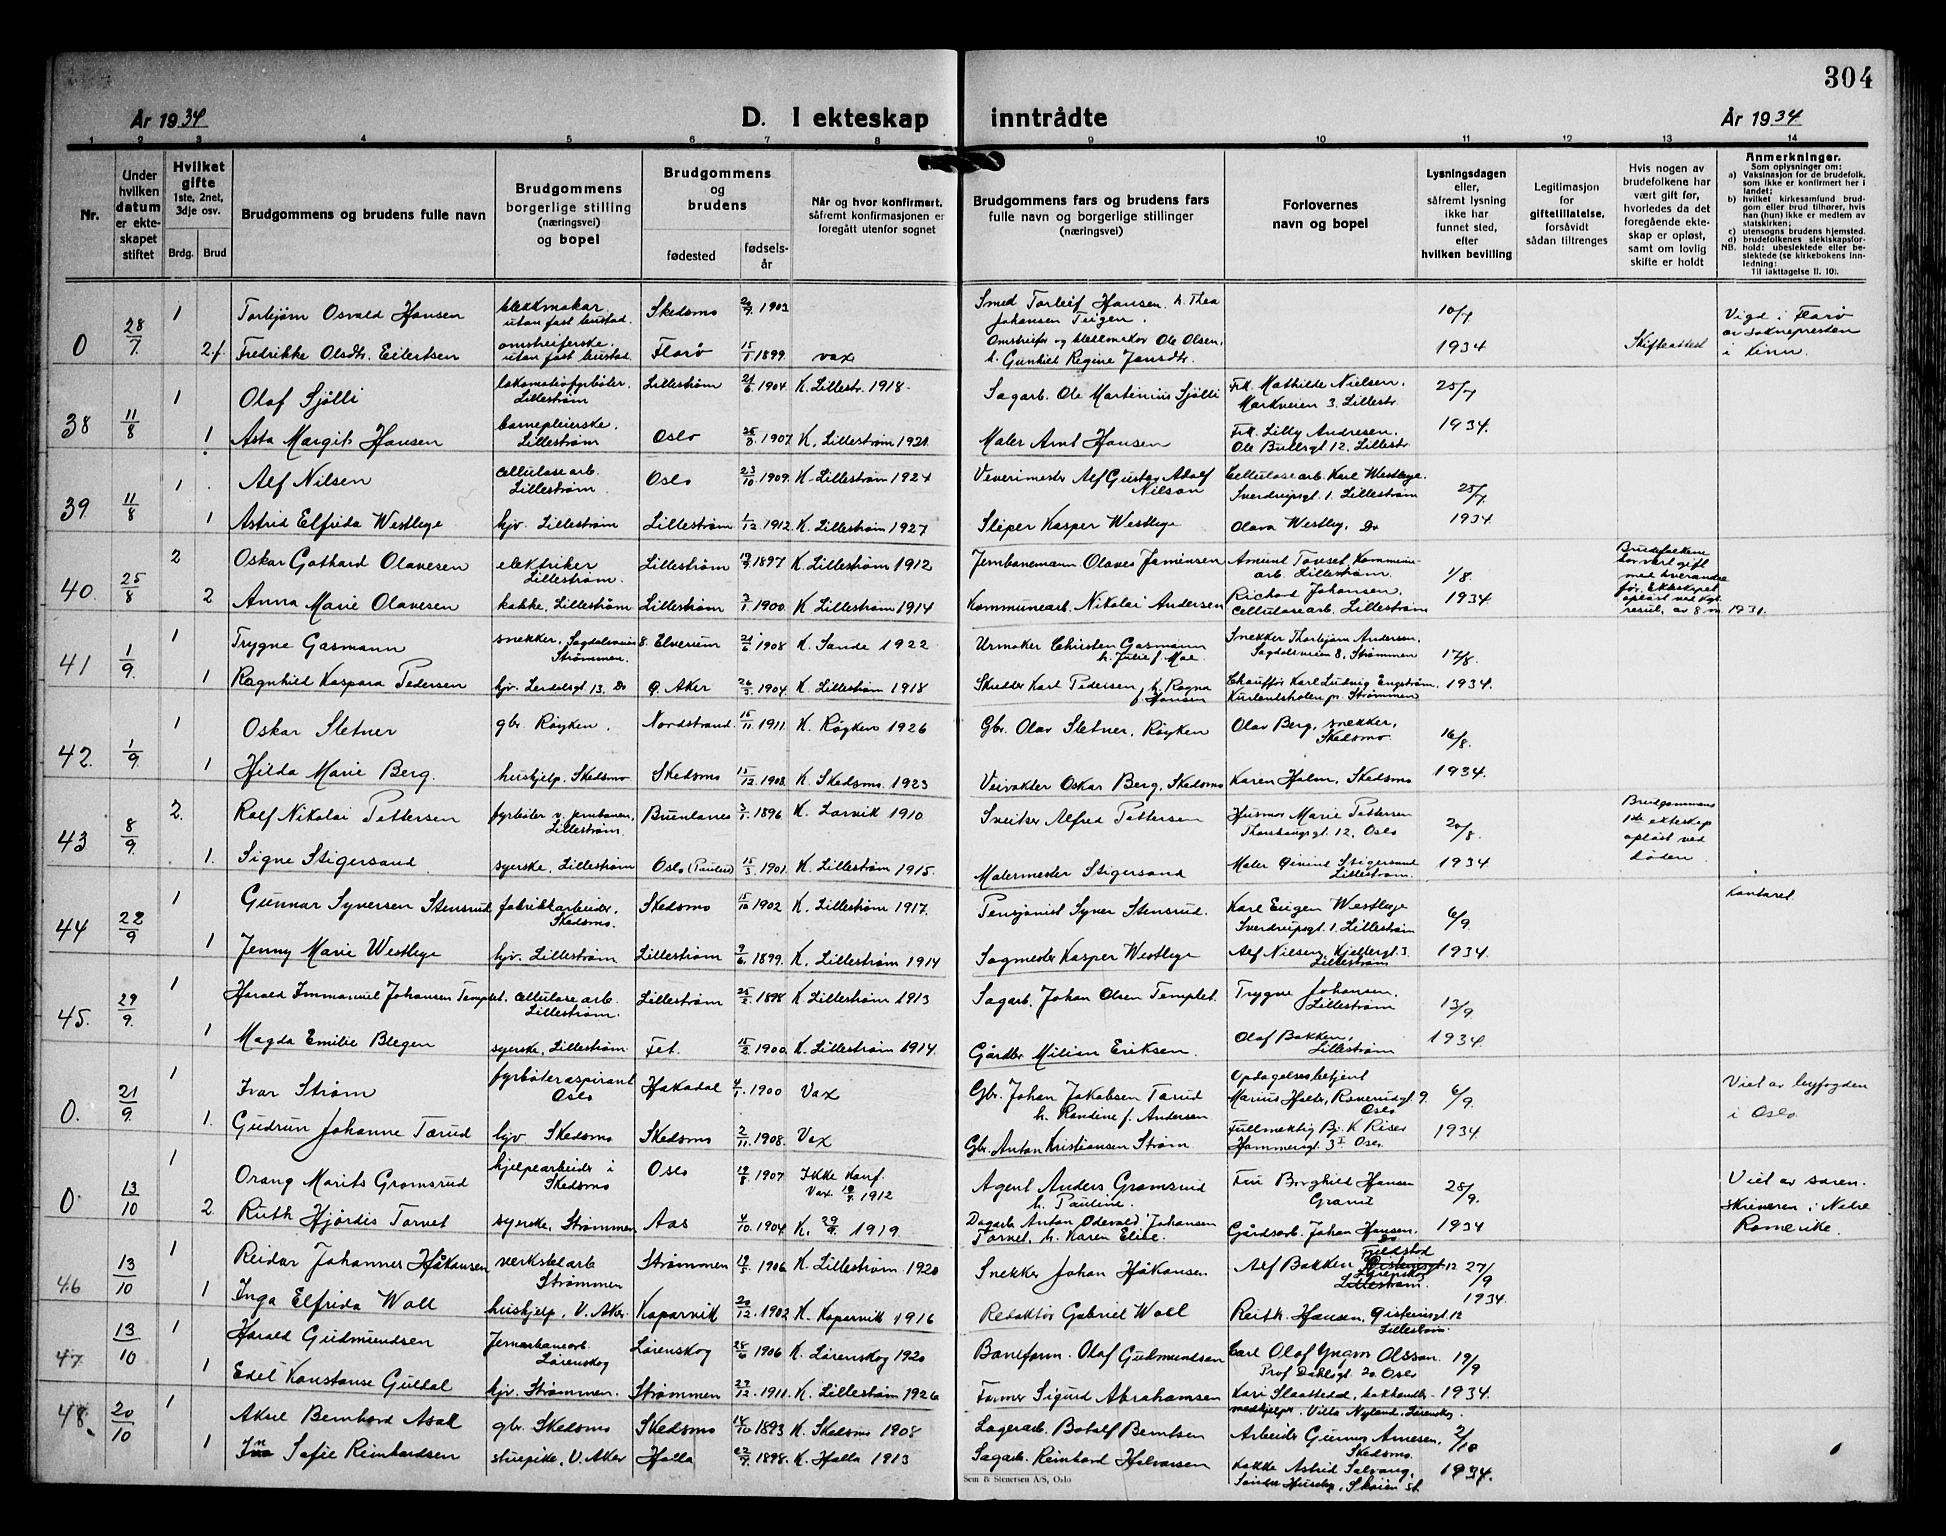 304
År 1934
D. I ekteskap inntrådte
År 1934
1 2 3 4 5 6 7 8 9 10 11 12 13 14
Nr.
Under hvilken datum er ekteskapet stiftet
Hvilket gifte 1ste, 2net, 3dje osv.
Brdg. Brud
Brudgommens og brudens fulle navn
Brudgommens borgerlige stilling (næringsvei) og bopel
Brudgommens og brudens
fødested
fødselsår
Når og hvor konfirmert.
såfremt konfirmasjonen er foregått utenfor sognet
Brudgommens fars og brudens fars
fulle navn og borgerlige stillinger
(næringsvei)
Forlovernes navn og bopel
Lysningsdagen eller, såfremt lysning ikke har funnet sted, efter hvilken bevilling
Legitimasjon for giftetillatelse, forsåvidt sådan tiltrenges
Hvis nogen av brudefolkene har vært gift før, hvorledes da det foregående ekteskap er opløst, samt om lovlig skifte er holdt
Anmerkninger.
Som oplysninger om:
a) Vaksinasjon for de brudefolk, som ikke er konfirmert her i landet;
b) hvilket kirkesamfund brudgom eller brud tilhører, hvis han (hun) ikke er medlem av statskirken;
c) utensogns brudens hjemsted.
d) brudefolkenes slektskapsforhold: ubeslektede eller beslektede (se kirkebokens innledning:
NB.
Til iakttagelse II. 10).
0 28/7 1 Torbjørn Osvald Hansen blekkmakar utan fast bustad. Skedsmo 1903 Smed Torleif Hansen. h. Thea Johansen 10/7 Vigd i Florø av soknepresten i Kinn.
2. Fredrikke Olsdtr. Eilertsen omstreiferske. utan fast bustad. Florø 15/1 1899 vax Omstreifer og blekkmaker Ole Olsen, h. Gunhild Regine Jansdtr. 1934 Skifteattest
38 11/8 1 Olaf Sjølli lokomotivfyrbøter. Lillestrøm Lillestrøm 21/6 1904 K. Lillestr. 1918 Sagarb. Ole Martinius Sjølli Frk. Mathilde Nielsen. Markveien 3. Lillestr. 25/7
1 Asta Margit Hansen barnepleierske. Lillestrøm Oslo 1907 K. Lillestrøm 1921 Maler Hansen Frk. Lilly Andresen. Ole Bullsgt 12. Lillestr 1934.
39 11/8 1 Alf Nilsen cellulosearb. Lillestrøm Oslo 23/10 1909 K. Lillestrøm 1924 Veverimester Alf Gustav Adolf Nilson Cellulosearb. Karl Westbye. Sverdrupsgt. 1. Lillestrøm 25/7
1 Astrid Elfrida Westbye hjv. Lillestrøm Lillestrøm 1/12 1912 K. Lillestrøm 1927 Sliper Kasper Westbye Olava Westby, Do 1934
40. 25/8 2 Oskar Gothard Olavesen elektriker Lillestrøm. Lillestrøm 1897 K. Lillestrøm 1912 Jernbanemann Olaves Amund Kommunearb. Lillestrøm 1/8. Brudefolkene har vært gift med hverandre før. Ekteskapet opløst ved kgl. resol. av 8 m. 1931.
2 Anna Marie Olavesen kokke, Lillestrøm Lillestrøm 1900 K. Lillestrøm 1914 Kommunearb. Nikolai Andersen Richard Johansen. Cellulosearb. Lillestrøm 1934.
41 1/9. 1 Trygve Gasmann snekker. Sagdalsveien 8. Strømmen. Elverum 21/6 1908 K. Sande 1922 Urmaker Christen Gasmann h. Julie f. Moe. Snekker Thorbjørn Andersen. Sagdalsveien 8, Strømmen 17/8.
1 Ragnhild Kaspara Pedersen hjv. Lerdalsgt 13. Do Ø. Aker 1904 K. Lillestrøm 1918 Skredder Karl Pedersen, h. Ragna f Hansen Chauffør Karl Ludvig Engstrøm. pr. Strømmen 1934.
42. 1/9. 1 Oskar Sletner gbr. Røyken. Nordstrand. 15/11 1911 K. Røyken 1926 Gbr. Olav Sletner, Røyken Olav Berg, snekker, Skedsmo 16/8.
1 Hilda Marie Berg. hushjelp. Skedsmo Skedsmo 15/12 1908 K. Skedsmo. 1923 Veivokter Oskar Berg, Skedsmo Karen Holm, Skedsmo 1934.
43 8/9. 2. Rolf Nikolai Pettersen fyrbøter v. jernbanen, Lillestrøm. Brunlanes 1896 K. Larvik 1910 Sveitser Alfred Pettersen Husmor Marie Pettersen 12. Oslo 20/8. Brudgommens 1ste ekteskap opløst ved døden.
1. Signe Stigersand syerske, Lillestrøm Oslo (Paulus) 15/3 1901. K. Lillestrøm 1915. Malermester Stigersand Maler Eivind Stigersand Lillestrøm. 1934
44 22/9 1 Gunnar Syversen Stensrud fabrikkarbeider. Skedsmo. Skedsmo 15/10 1902 K. Lillestrøm 1917. Pensjonist Syver Stensrud. Karl Eugen Westbye Sverdrupsgt. 1, Lillestrøm 6/9. Kontoret.
1 Jenny Marie Westbye hjv. Lillestrøm Lillestrøm 9/6 1899. K. Lillestrøm 1914 Sagmester Kasper Westbye Alf Nilsen, 3 Lillestrøm 1934.
45. 29/9. 1 Harald Immanuel Johansen Templet. cellulosearb. Lillestrøm. Lillestrøm 25/2 1898 K. Lillestrøm 1913 Sagarb. Johan Olsen Templet. Trygve Johansen. Lillestrøm 13/9
1 Magda Emilie Blegen syerske, Lillestrøm Fet. 15/2 1900 K. Lillestrøm 1914. Gårdbr Milian Eriksen. Olaf Bakken, Lillestrøm 1934.
0. 21/9. 1 Ivar Strøm fyrbøteraspirant Oslo Hakadal 4/1 1900 Vax Gbr. Johan Jakobsen Tærud h. Randine f. Andersen Opdagelsesbetjent Marius 9. Oslo 6/9. Viet av byfogden i Oslo.
1. Gudrun Johanne Tærud hjv Skedsmo Skedsmo 2/11 1908. Vax Gbr. Anton Kristiansen Strøm Fullmektig Bj. K Riser Hammersgt. 3 Oslo 1934.
0 13/10 1 Orang Marits Gromsrud hjelpearbeider i Skedsmo Oslo 1907 Ikke Konf. Vax 1912 Agent Anders Gromsrud h. Pauline. Fru Borghild Hansen 28/9. Viet av soren-skriveren i Nedre Romerike.
2. Ruth Hjørdis Torvet syerske, Strømmen Aas 4/10 1904 K. 1919. Dagarb. Anton Odevald Johansen Torvet, h. Karen Elise. Gårdsarb. Johan Hansen. Do 1934
46 13/10 1 Reidar Johannes Håkansen verkstedarb Strømmen Strømmen 1906 K. Lillestrøm 1920 Snekker Johan Håkansen Alf Bakken 27/9
1 Inga Elfrida Woll hushjelp, V. Aker. Kopervik 20/12 1902 K. Kopervik 1916 Redaktør Gabriel Woll Reith. Hansen, 12 Lillestrøm. 1934.
47 13/10 1 Harald Gudmundsen Jernbanearb. Lørenskog Lørenskog 28/6 1906 K. Lørenskog 1920 Baneform. Olaf Gudmundsen Carl Olaf Yngvar Olsson. Prof Dahlsgt. 20 Oslo 19/9
1 Edel Konstanse Guldal hjv. Strømmen. Strømmen 27/12 1911. K. Lillestrøm 1926 Former Sigurd Abrahamsen Kari Slaattedal, bokhandlermedhjelper. Villa Nyland, Lørenskog. 1934.
48. 20/10 1 Aksel Bernhard Aval gbr. Skedsmo Skedsmo 14/10 1893 K. Skedsmo 1908 Lagerarb. Botolf Berntsen Arbeider Gunnar Arnesen. Skedsmo. 2/10
1 Sofie Reinhardsen stuepike, V. Aker Holla 1898. K. Holla 1913 Sagarb. Reinhard Halvorsen Kokke Astrid Solvang, Søndre Huseby, Skøien st. 1934.
Sem & Stenersen A/S, Oslo